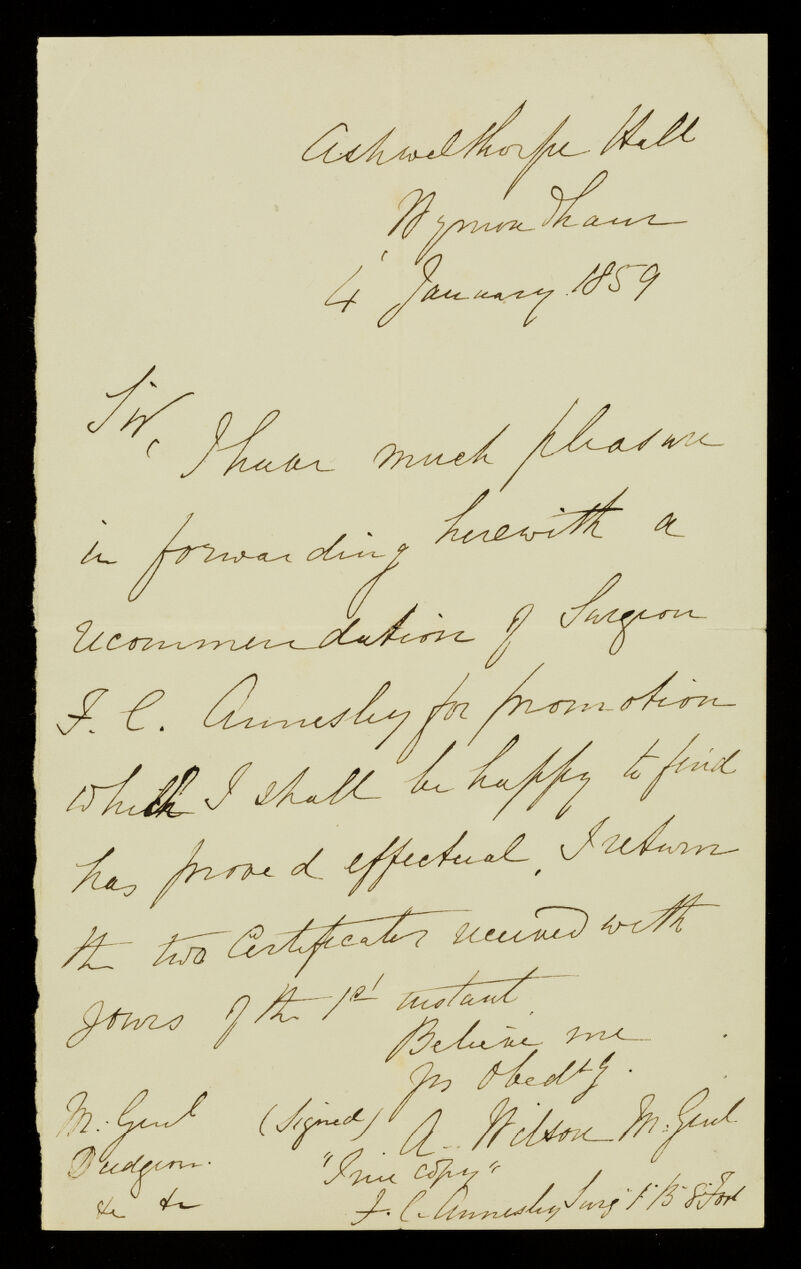 Ashwelthorpe Hall
Wymondham
4 January 1859
Sir,
I have much pleasure
in forwarding herewith a
recommendation of Surgeon
F. C. Annesley for promotion
which I shall be happy to find
has proved effectual. I return
the two Certificates received with
yours of the 1st instant
Believe me
yrs Obedtly.
(Signed) A. Wilson M. Genl
M. Genl
Dudgeon.
&c &c
"True copy"
F. C. Annesley Surg 1 B 8 Foot